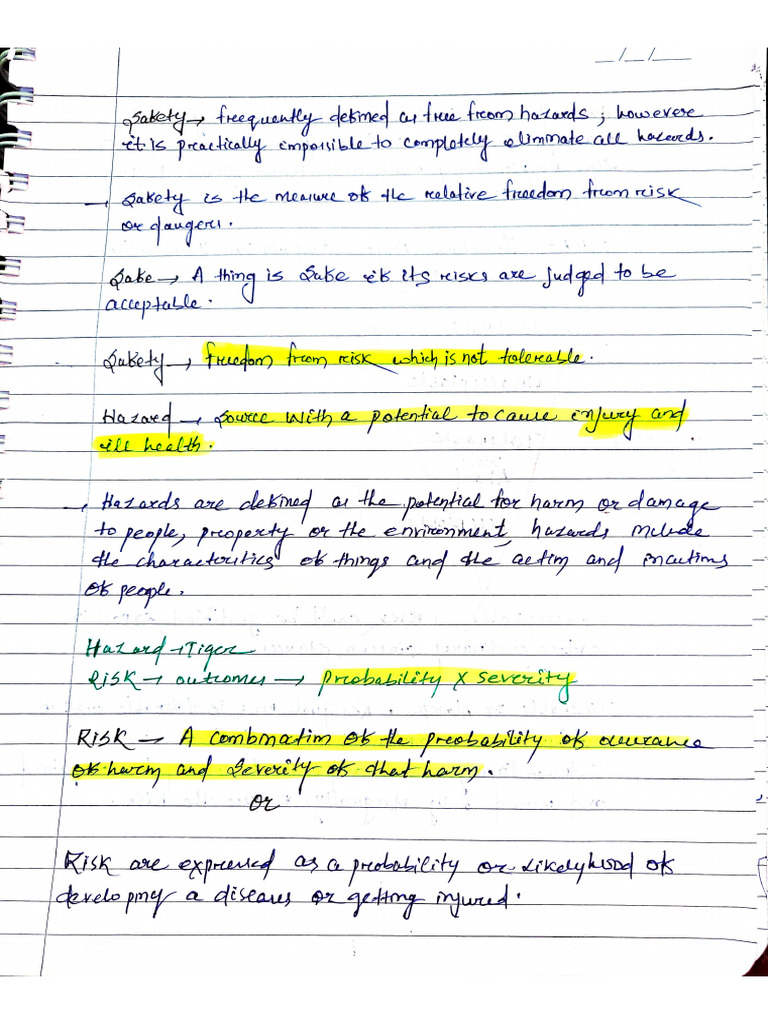 _/_/_
Safety → freequently defined as free from hazards; however
it is practically impossible to completely eliminate all hazards.
→ Safety is the measure of the relative freedom from risk
or dangers.
Safe → A thing is safe if its risks are judged to be
acceptable.
Safety → freedom from risk which is not tolereable.
Hazard → Source with a potential to cause injury and
ill health.
→ Hazards are defined as the potential for harm or damage
to people, property or the environment, hazards include
the characteristics of things and the action and inactions
of people.
Hazard → Tiger
Risk → outcomes → Probability x severity
Risk → A combination of the probability of occurance
of harm and severity of that harm.
or
Risk are expressed as a probability or likelyhood of
developing a diseases or getting injured.